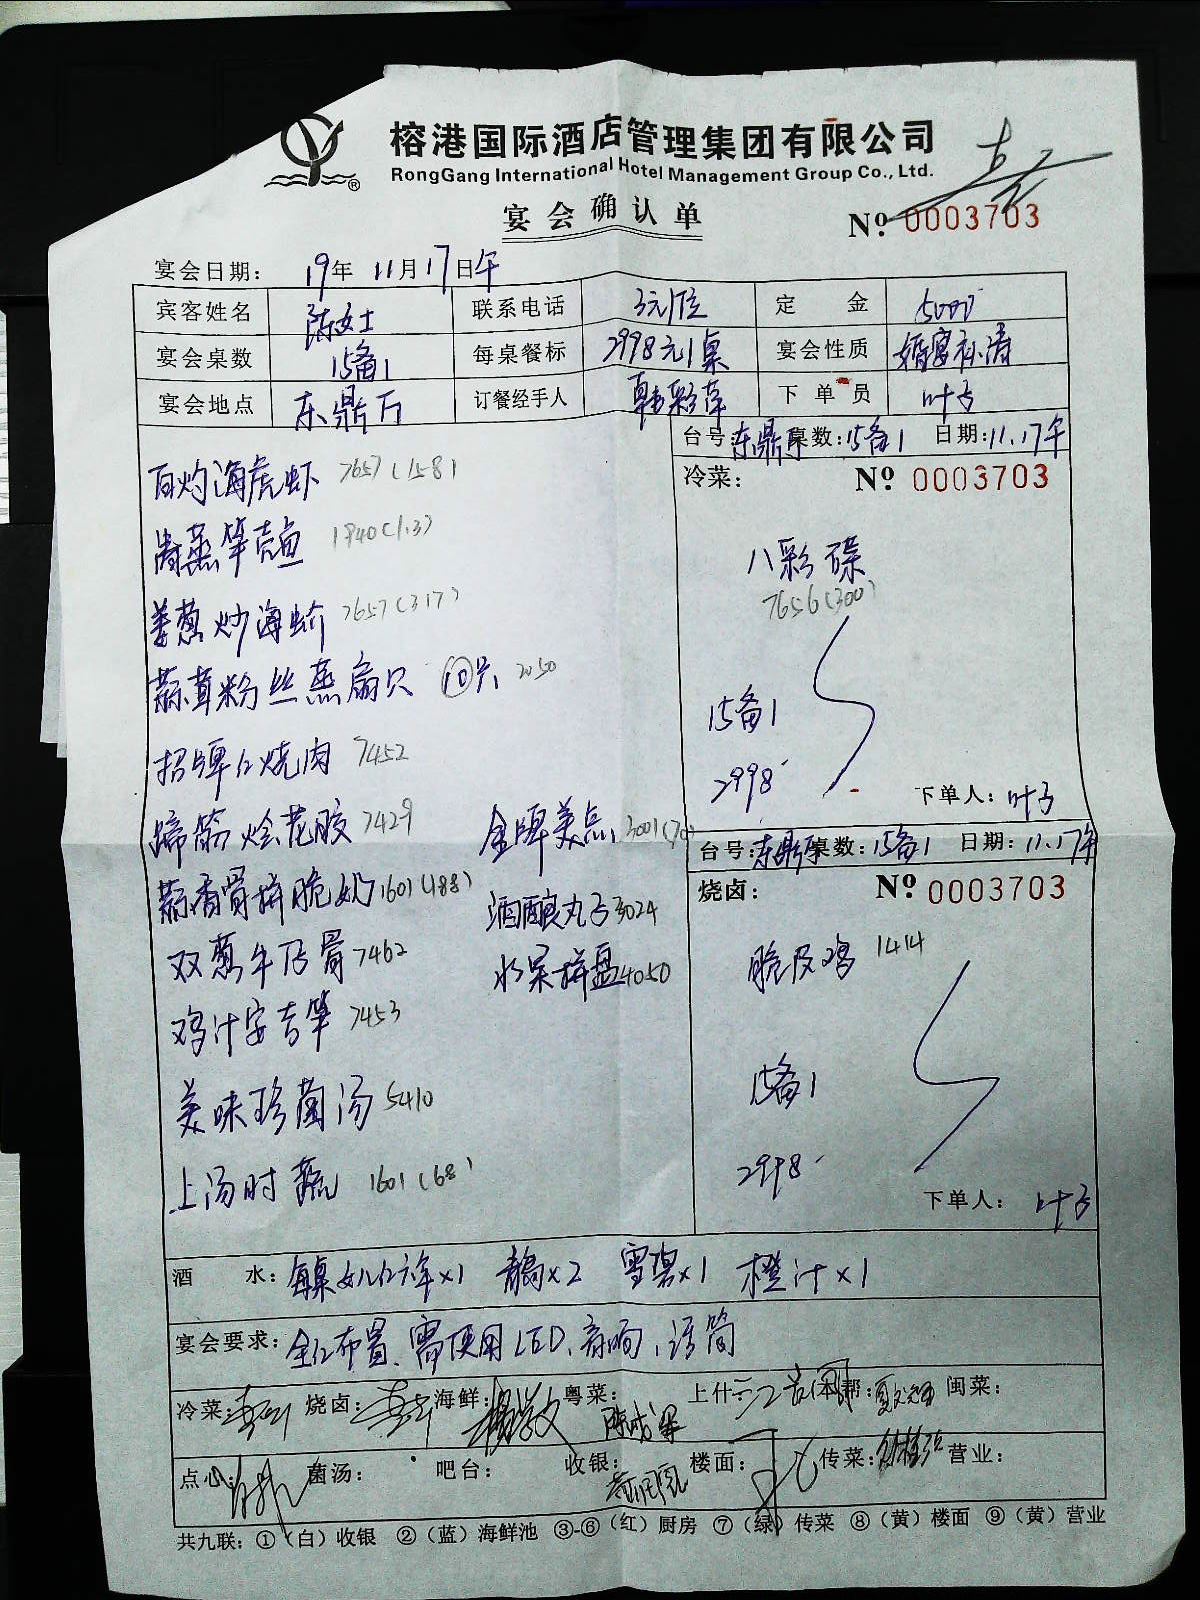 榕港国际酒店管理集团有限公司
RongGang International Hotel Management Group Co., Ltd.
宴会确认单
№ 0003703
宴会日期: 19年 11月17日午
宾客姓名 陈女士 联系电话 3元/位 定金 5000
宴会桌数 15备1 每桌餐标 2998元/桌 宴会性质 婚宴
宴会地点 东鼎万 订餐经手人 韩彩萍 下单员 叶子
台号: 东鼎 桌数: 15备1 日期: 11.17午
白灼海虎虾 7657(158)
冷菜: № 0003703
清蒸笋壳鱼 1840(1.3)
八彩碟
7656(300)
姜葱炒海蚧 7657(317)
蒜茸粉丝蒸扇贝 ⑩只 2050
15备1
招牌红烧肉 7452
2998
下单人: 叶子
蹄筋烩花胶 7429 金牌美点 3001(70)
台号: 东鼎 桌数: 15备1 日期: 11.17午
蒜香骨拼脆奶 1601(188) 酒酿丸子 3024
烧卤: № 0003703
双葱牛仔骨 7462 水果拼盘 4050
脆皮鸡 1414
鸡汁安吉笋 7453
美味珍菌汤 5410
15备1
上汤时蔬 1601(68)
2998
下单人: 叶子
酒水: 每桌女儿红六年×1 ×2 雪碧×1 橙汁×1
宴会要求: 全红布置、需使用LED、音响、话筒
冷菜: 烧卤: 海鲜: 粤菜: 上什: 本帮: 闽菜:
点心: 菌汤: 吧台: 收银: 楼面: 传菜: 营业:
共九联: ①(白)收银 ②(蓝)海鲜池 ③-⑥(红)厨房 ⑦(绿)传菜 ⑧(黄)楼面 ⑨(黄)营业